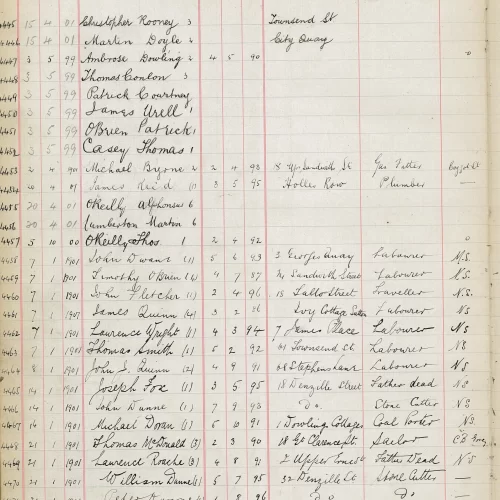 4445 15 4 01 Christopher Rooney 3 Townsend St
4446 15 4 01 Martin Doyle 2 City Quay
4447 3 5 99 Ambrose Dowling 2 4 5 90
4448 3 5 99 Thomas Conlon 3
4449 3 5 99 Patrick Courtney
4450 3 5 99 James Urell 1
4451 3 5 99 OBrien Patrick 1
4452 3 5 99 Casey Thomas 1
4453 2 4 901 Michael Byrne 2 2 4 93 8 Up Sandwith St Gas Fitter
4454 4 01 James Reid 3 5 95 Holles Row Plumber —
4455 20 4 01 OReilly Alphonsus 6
4456 20 4 01 Cumberton Martin 6
4457 5 10 00 OReilly Thos 1 2 4 92
4458 7 1 1901 John Dwane (1) 5 6 93 3 Georges Quay Labourer N.S.
4459 7 1 1901 Timothy OBrien 4 7 87 Sandwith Street Labourer N.S.
4460 7 1 1901 John Fletcher (1) 2 4 96 15 Street Traveller N.S.
4461 7 1 1901 James Quinn (4) 3 2 Ivy Cottage Labourer NS
4462 7 1 1901 Lawrence Wright (1) 4 3 94 7 James Place Labourer NS
4463 1 1901 Thomas Smith (1) 5 2 92 61 Townsend St Labourer NS
4464 8 1 1901 John S. Quinn (2) 4 9 91 Stephens Lane Labourer NS
4465 14 1 1901 Joseph Fox (1) 3 5 95 18 Denzille Street Father dead NS
4466 14 1 1901 John Dunne (1) 7 9 93 Do. Stone Cutter NS
4467 14 1 1901 Michael Doran (1) 6 10 91 1 Dowlings Cottages Coal Porter NS
4468 21 1 1901 Thomas McDonald (3) 2 3 90 18 Gt Clarence St Sailor
4469 21 1 1901 Lawrence Roache (3) 4 8 91 2 Upper Father Dead NS
4470 21 1 1901 William Dunne (1) 5 7 95 32 Denzille St Stone Cutter —
1 8 96 Do